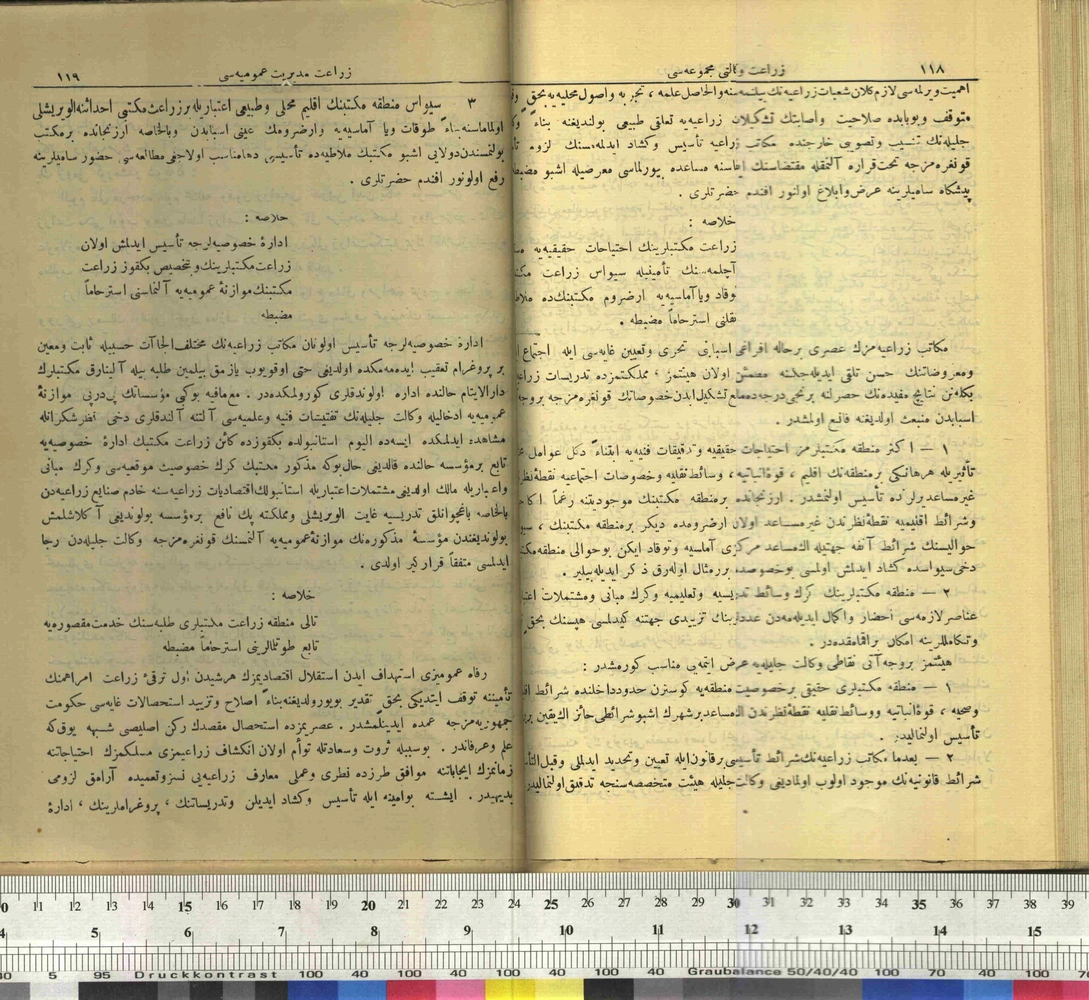 ١١٨
زراعت وكالتى مجموعه‌سى
اهميت ويرلمه‌سى لازم كلان شعبات زراعيه‌نك والحاصل علمه ، تجربه واصول محليه‌يه بحق
متوقف وبوبابده صلاحيت واصابتك تشكيلات زراعيه‌يه تعلقى طبيعى بولنديغنه بناءً
جليله‌نك تنسيب وتصويبى خارجنده مكاتب زراعيه تأسيس وكشاد ايدلمه‌مسنك لزوم
قونغره‌مزجه تحت قراره آلنمقله مقتضاسنك ايفاسنه مساعده بيورلماسى معرضيله اشبو
پيشكاه ساميلرينه عرض وابلاغ اولنور افندم حضرتلرى .
خلاصه :
زراعت مكتبلرينك احتياجات حقيقيه‌يه
آچلمه‌سنك تأمينيله سيواس زراعت
توقاد ويا آماسيه‌يه ارضروم مكتبنك‌ده
نقلنى استرحاماً مضبطه .
مكاتب زراعيه‌مزك عصرى برحاله افراغى اسبابنى تحرى وتعيين غايه‌سى ايله اجتماع
ومعروضاتنك حسن تلقى ايديله‌جكنه مطمئن اولان هيئتمز ، مملكتمزده تدريسات
بكله‌نن نتايج مفيده‌نك حصولنه برنجى درجه‌ده تشكيل ايدن خصوصاتك قونغره‌مزجه بروجه
اسبابدن منبعث اولديغنه قانع اولمشدر .
١ — اكثر منطقه مكتبلرمز احتياجات حقيقيه وتدقيقات فنيه‌يه ابتناءً دكل عوامل
تأثيريله هرهانكى برمنطقه‌نك اقليم ، قوهٔ انباتيه ، وسائط نقليه وخصوصات اجتماعيه نقطهٔ نظر
غير مساعد يرلرنده تأسيس اولنمشدر . ارزنجانده برمنطقه مكتبنك موجوديتنه رغماً
وشرائط اقليميه نقطهٔ نظرندن غير مساعد اولان ارضرومده ديكر برمنطقه مكتبنك ،
حواليسنك شرائط آنفه جهتيله اك مساعد مركزى آماسيه وتوقاد ايكن بوحوالى منطقه
دخى سيواسده كشاد ايدلمش اولمسى بوخصوصده برر مثال اوله‌رق ذكر ايديله‌بيلير .
٢ — منطقه مكتبلرينك كرك وسائط تدريسيه وتعليميه وكرك مبانى ومشتملات
عناصر لازمه‌سى احضار واكمال ايديله‌مه‌دن عددلرينك تزييدى جهتنه كيدلمسى هپسنك بحق
وتكامللرينه امكان براقمامقده‌در .
هيئتمز بروجه آتى نقاطى وكالت جليله‌يه عرض ايتمه‌يى مناسب كورمشدر :
١ — منطقه مكتبلرى حقيقى برخصوصيت منطقه‌يه كوسترن حدود داخلنده شرائط
وصحيه ، قوهٔ انباتيه ووسائط نقليه نقطهٔ نظرندن اك مساعد برشهرك اشبو شرائطى حائز اك يقين
تأسيس اولنماليدر .
٢ — بعدما مكاتب زراعيه‌نك شرائط تأسيسى برقانون ايله تعيين وتحديد ايدلملى وقبل
شرائط قانونيه‌نك موجود اولوب اولماديغى وكالت جليله هيئت متخصصه‌سنجه تدقيق اولنماليدر
١١٩
زراعت مديريت عموميه‌سى
٣ سيواس منطقه مكتبنك اقليم محلى وطبيعى اعتباريله برزراعت مكتبى احداثنه الويريشلى
اولماماسنه بناءً طوقات ويا آماسيه‌يه وارضرومك عينى اسبابدن وبالخاصه ارزنجانده برمكتب
بولنمسندن دولايى اشبو مكتبك ملاطيه‌ده تأسيسى دها مناسب اولاجغى مطالعه‌سى حضور ساميلرينه
رفع اولونور افندم حضرتلرى .
خلاصه :
ادارهٔ خصوصيه‌لرجه تأسيس ايدلمش اولان
زراعت مكتبلرينك وبتخصيص بكقوز زراعت
مكتبنك موازنهٔ عموميه‌يه آلنماسنى استرحاماً
مضبطه
ادارهٔ خصوصيه‌لرجه تأسيس اولونان مكاتب زراعيه‌نك مختلف الجاآت حسبيله ثابت ومعين
بر پروغرام تعقيب ايده‌مه‌مكده اولديغى حتى اوقويوب يازمق بيلمين طلبه بيله آلينارق مكتبلرك
دارالايتام حالنده اداره اولوندقلرى كورولمكده‌در . مع‌مافيه بوكى مؤسساتك پى‌درپى موازنهٔ
عموميه‌يه ادخاليله وكالت جليله‌نك تفتيشات فنيه وعلميه‌سى آلتنه آلندقلرى دخى نظر شكرانله
مشاهده ايدلمكده ايسه‌ده اليوم استانبولده بكقوزده كائن زراعت مكتبك ادارهٔ خصوصيه‌يه
تابع برمؤسسه حالنده قالديغى حال‌بوكه مذكور مكتبك كرك خصوصيت موقعيه‌سى وكرك مبانى
واعتباريله مالك اولديغى مشتملات اعتباريله استانبولك اقتصاديات زراعيه‌سنه خادم صنايع زراعيه‌دن
بالخاصه باغچوانلق تدريسيه غايت الويريشلى ومملكته پك نافع برمؤسسه بولونديغى آكلاشلمش
بولونديغندن مؤسسهٔ مذكوره‌نك موازنهٔ عموميه‌يه آلنمسنك قونغره‌مزجه وكالت جليله‌دن رجا
ايدلمسى متفقاً قراركير اولدى .
خلاصه :
تالى منطقه زراعت مكتبلرى طلبه‌سنك خدمت مقصوره‌يه
تابع طوتلمالرينى استرحاماً مضبطه
رفاه عموميزى استهداف ايدن استقلال اقتصاديمزك هرشيدن اول ترقئ زراعت امرا همنك
تأميننه توقف ايتديكى بحق تقدير بويورولديغنه بناءً اصلاح وتزييد استحصالات غايه‌سى حكومت
جمهوريه‌مزجه عمده ايدينلمشدر . عصريمزده استحصال مقصدك ركن اصليسى شبهه يوق‌كه
علم وعرفاندر . بوسببله ثروت وسعادتله توأم اولان انكشاف زراعيمزى مسلكمزك احتياجاتنه
زمانمزك ايجاباتنه موافق طرزده نظرى وعملى معارف زراعيه‌يى نشر وتعميمده آرامق لزومى
بديهيدر . ايشته بوامينه ايله تأسيس وكشاد ايديلن وتدريساتنك ، پروغراملرينك ، ادارهٔ
0 11 12 13 14 15 16 17 18 19 20 21 22 23 24 25 26 27 28 29 30 31 32 33 34 35 36 37 38 39
4 5 6 7 8 9 10 11 12 13 14 15
5 95 Druckkontrast 100 40 100 40 100 40 100 40 Graubalance 50/40/40 100 70 40 100